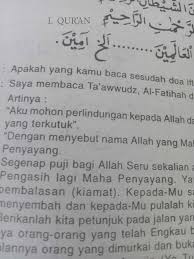 الشَّيْطَانِ الرَّ
I. QUR'AN
حْمٰنِ الرَّحِيْمِ
الْعَالَمِيْنَ .......... الخ آمِيْنَ.
: Apakah yang kamu baca sesudah doa i
: Saya membaca Ta'awwudz, Al-Fatihah d
Artinya :
"Aku mohon perlindungan kepada Allah da
yang terkutuk".
"Dengan menyebut nama Allah yang Mah
Penyayang.
Segenap puji bagi Allah Seru sekalian a
Pengasih lagi Maha Penyayang. Ya
pembalasan (kiamat). Kepada-Mu s
menyembah dan kepada-Mu pulalah ki
enkanlah kita petunjuk pada jalan ya
ya orang-orang yang telah Engkau b
alannya orang yang dimurkai dan buka